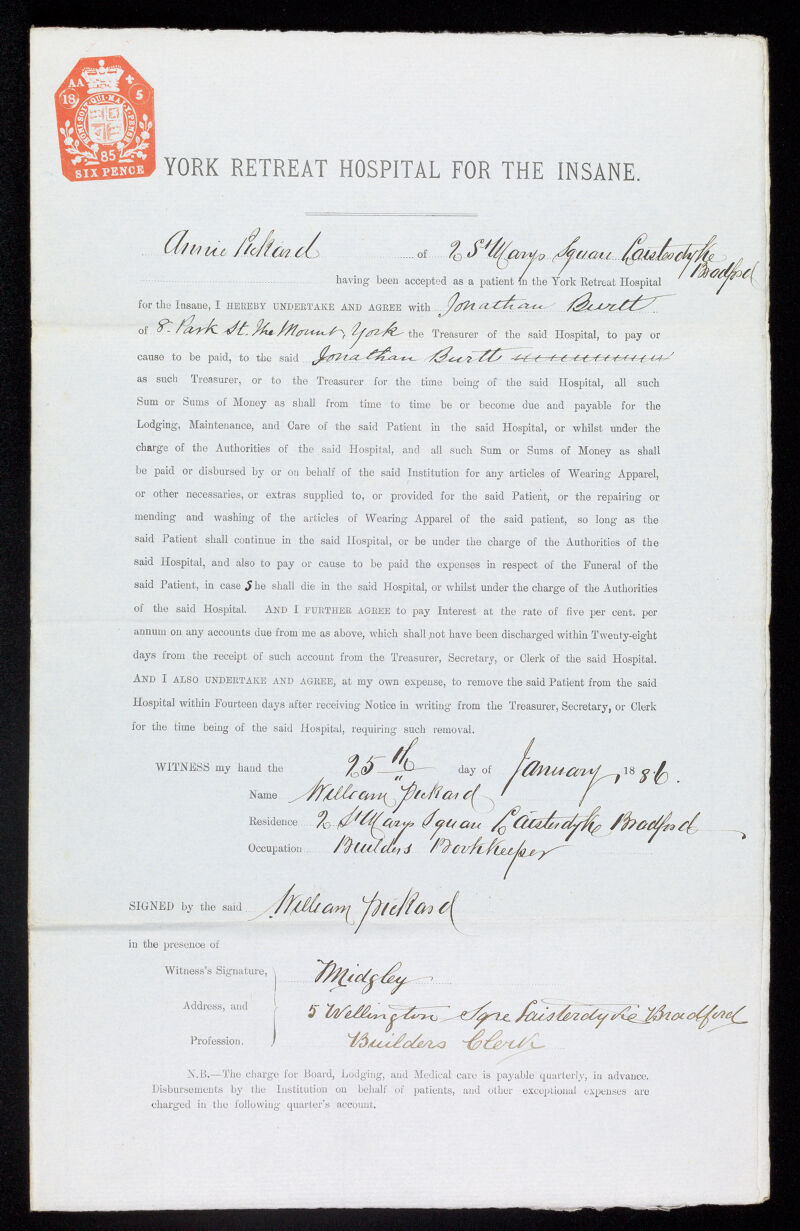 AA
18 5
HONI·SOIT·QUI·MAL·Y·PENSE
85
SIX PENCE
YORK RETREAT HOSPITAL FOR THE INSANE.
Annie Pickard of 2 St Marys Square Laisterdyke
Bradford
having been accepted as a patient in the York Retreat Hospital
for the Insane, I HEREBY UNDERTAKE AND AGREE with Jonathan Burtt
of 8. Park St. The Mount, York the Treasurer of the said Hospital, to pay or
cause to be paid, to the said Jonathan Burtt
as such Treasurer, or to the Treasurer for the time being of the said Hospital, all such
Sum or Sums of Money as shall from time to time be or become due and payable for the
Lodging, Maintenance, and Care of the said Patient in the said Hospital, or whilst under the
charge of the Authorities of the said Hospital, and all such Sum or Sums of Money as shall
be paid or disbursed by or on behalf of the said Institution for any articles of Wearing Apparel,
or other necessaries, or extras supplied to, or provided for the said Patient, or the repairing or
mending and washing of the articles of Wearing Apparel of the said patient, so long as the
said Patient shall continue in the said Hospital, or be under the charge of the Authorities of the
said Hospital, and also to pay or cause to be paid the expenses in respect of the Funeral of the
said Patient, in case She shall die in the said Hospital, or whilst under the charge of the Authorities
of the said Hospital. AND I FURTHER AGREE to pay Interest at the rate of five per cent. per
annum on any accounts due from me as above, which shall not have been discharged within Twenty-eight
days from the receipt of such account from the Treasurer, Secretary, or Clerk of the said Hospital.
AND I ALSO UNDERTAKE AND AGREE, at my own expense, to remove the said Patient from the said
Hospital within Fourteen days after receiving Notice in writing from the Treasurer, Secretary, or Clerk
for the time being of the said Hospital, requiring such removal.
WITNESS my hand the 25th day of January, 1886.
Name William Pickard
Residence 2 St Marys Square Laisterdyke Bradford
Occupation Builders Bookkeeper
SIGNED by the said William Pickard
in the presence of
Witness's Signature, Midgley
Address, and 5 Wellington Sqre Laisterdyke Bradford
Profession. Builders Clerk
N.B.—The charge for Board, Lodging, and Medical care is payable quarterly, in advance.
Disbursements by the Institution on behalf of patients, and other exceptional expenses are
charged in the following quarter's account.